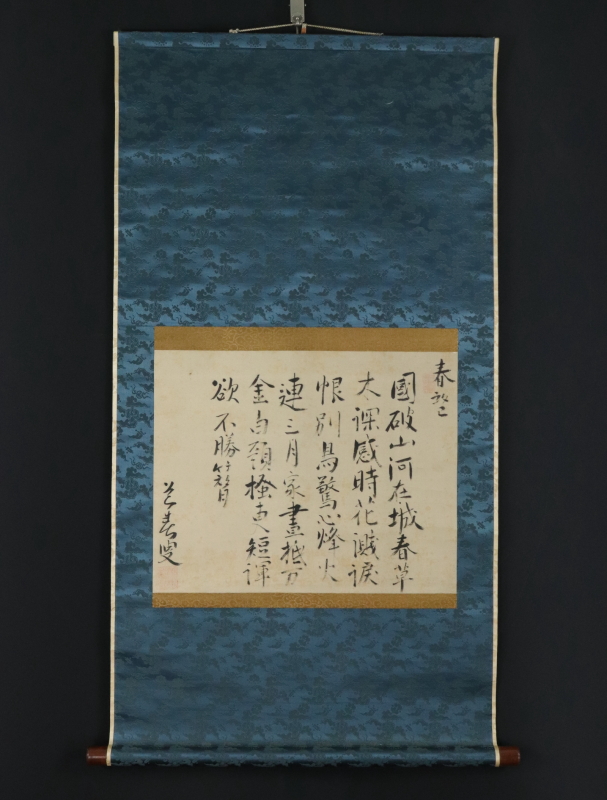 春望
國破山河在城春草
木深感時花濺淚
恨別鳥驚心烽火
連三月家書抵万
金白頭搔更短渾
欲不勝簪
春叟